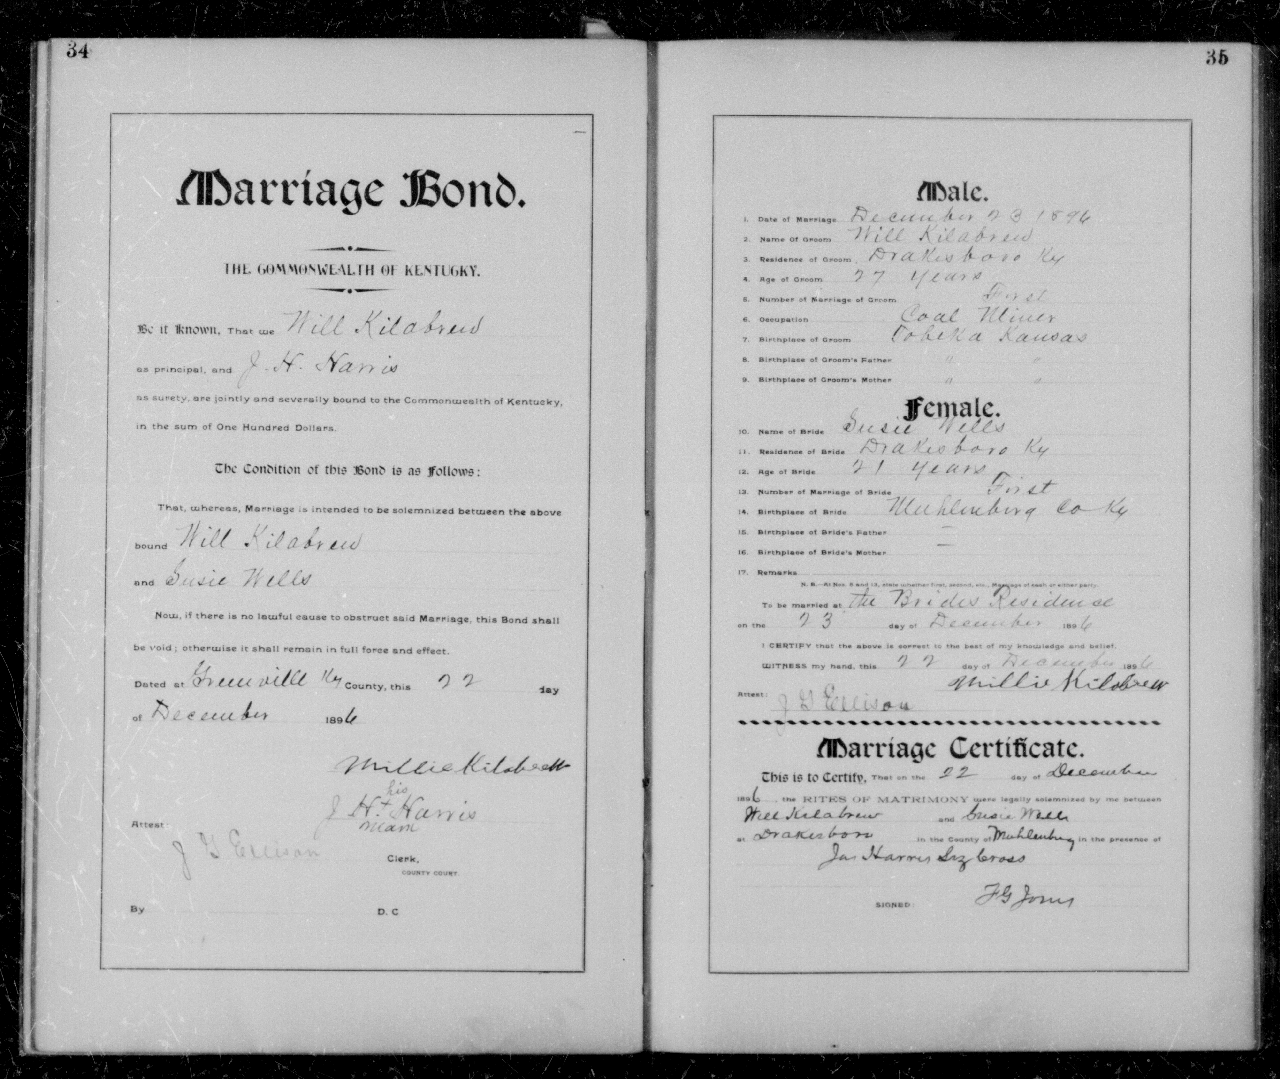 34
Marriage Bond.
THE COMMONWEALTH OF KENTUCKY.
Be it Known, That we Will Kilabrew
as principal, and J. H. Harris
as surety, are jointly and severally bound to the Commonwealth of Kentucky,
in the sum of One Hundred Dollars.
The Condition of this Bond is as Follows:
That, whereas, Marriage is intended to be solemnized between the above
bound Will Kilabrew
and Susie Wells
Now, if there is no lawful cause to obstruct said Marriage, this Bond shall
be void; otherwise it shall remain in full force and effect.
Dated at Greenville Ky County, this 22 day
of December 1896
Millie Kilabrew
his
J H + Harris
mark
Attest:
J G Ellison
Clerk,
COUNTY COURT.
By D. C
35
Male.
1. Date of Marriage December 23 1896
2. Name Of Groom Will Kilabrew
3. Residence of Groom Drakesboro Ky
4. Age of Groom 27 years
5. Number of Marriage of Groom First
6. Occupation Coal Miner
7. Birthplace of Groom Tobeka Kansas
8. Birthplace of Groom's Father " "
9. Birthplace of Groom's Mother " "
Female.
10. Name of Bride Susie Wells
11. Residence of Bride Drakesboro Ky
12. Age of Bride 21 years
13. Number of Marriage of Bride First
14. Birthplace of Bride Muhlenberg Co Ky
15. Birthplace of Bride's Father —
16. Birthplace of Bride's Mother —
17. Remarks
N. B.—At Nos. 5 and 13, state whether first, second, etc., Marriage of each or either party.
To be married at the Brides Residence
on the 23 day of December 1896
I CERTIFY that the above is correct to the best of my knowledge and belief.
WITNESS my hand, this 22 day of December 1896
Millie Kilabrew
Attest:
J G Ellison
Marriage Certificate.
This is to Certify, That on the 22 day of December
1896, the RITES OF MATRIMONY were legally solemnized by me between
Will Kilabrew and Susie Wells
at Drakesboro in the County of Muhlenberg in the presence of
Jas Harris Cross
SIGNED: F G Jones